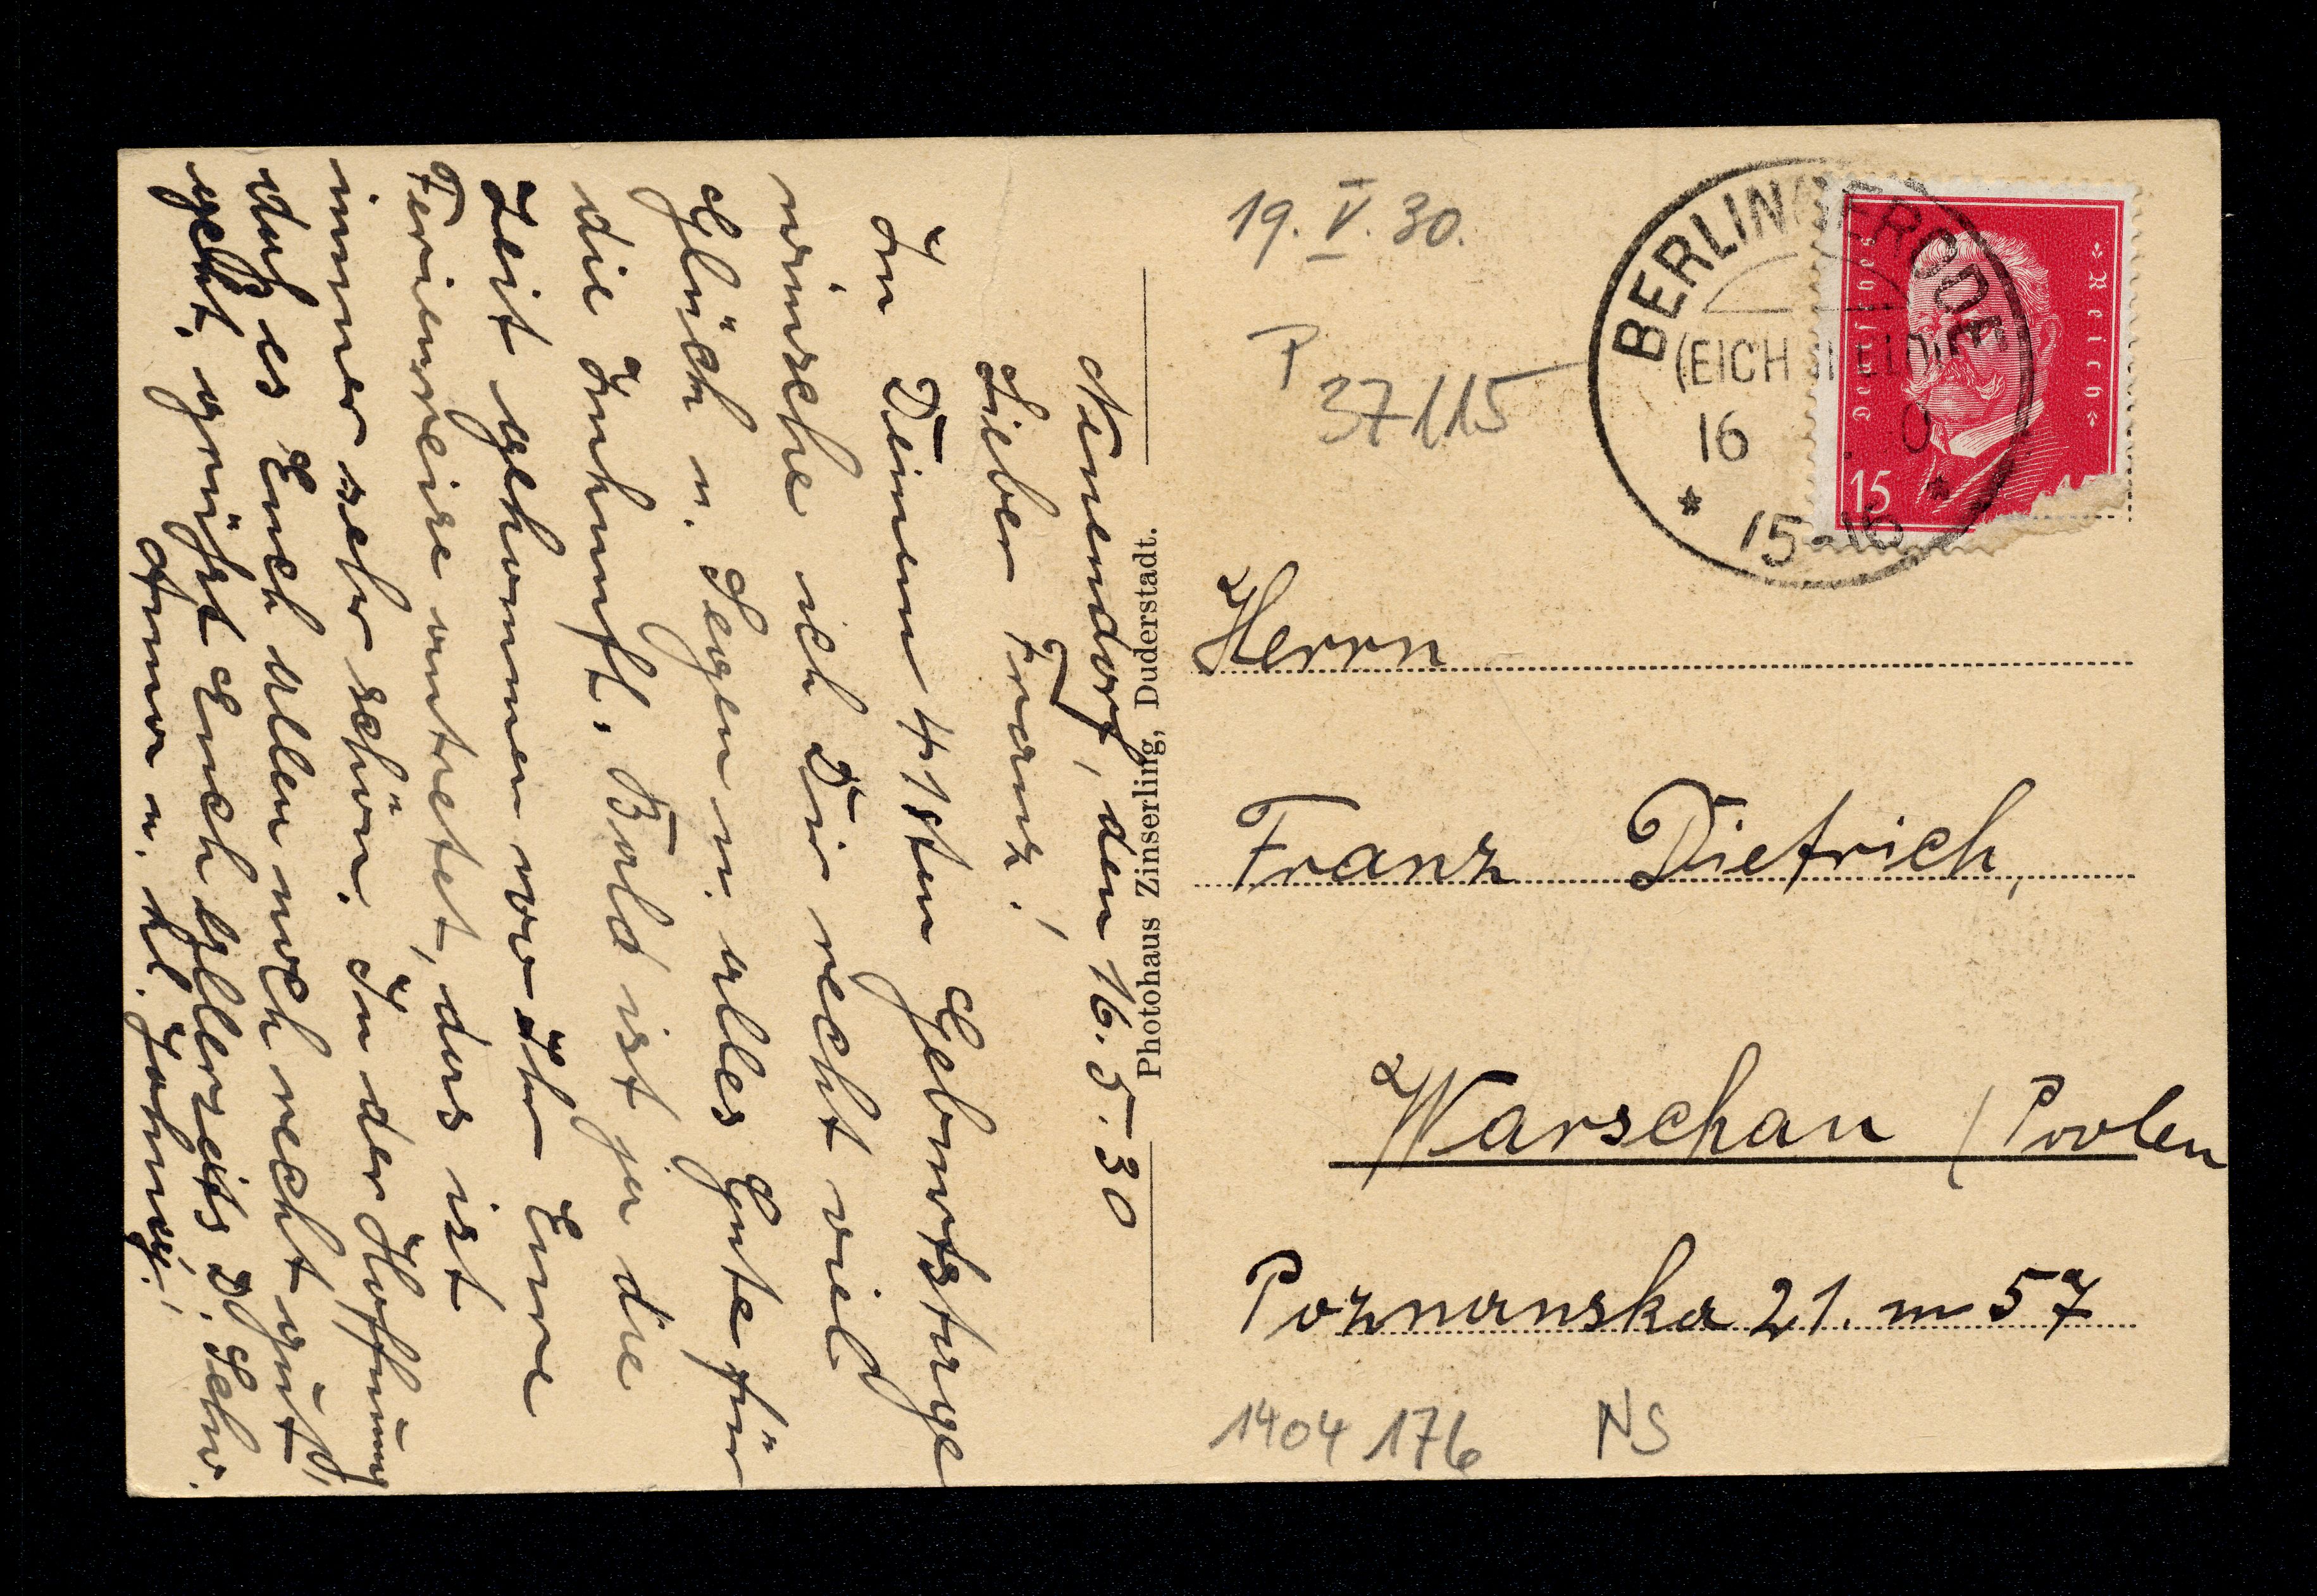 Neuendorf, den 16. 5. 30
Lieber Franz!
Zu Deinem 41sten Geburtstage
wünsche ich Dir recht viel
Glück u. Segen u. alles Gute für
die Zukunft. Bald ist ja die
Zeit gekommen wo Ihr Eure
Ferienreise antretet, das ist
immer sehr schön. In der Hoffnung
daß es Euch allen noch recht gut
geht, grüßt Euch allerseits D. Schw.
Anna u. kl.
Photohaus Zinserling, Duderstadt.
19. V. 30.
P
37/115
BERLINGERODE
(EICHSFELD)
16 0
15-16
Deutsches Reich
15
Herrn
Franz Dietrich,
Warschau / Poolen
Poznanska 21. m 57
1404 176 NS